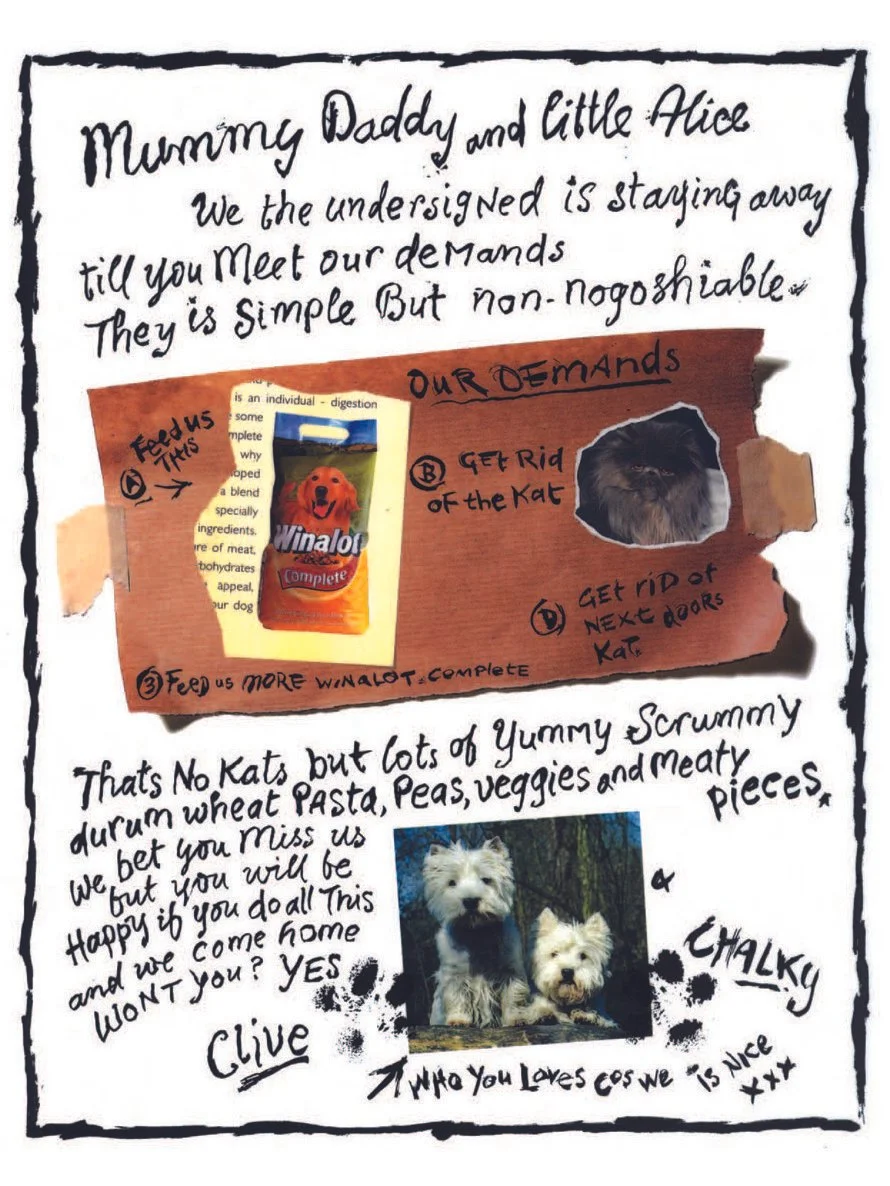 Mummy Daddy and little Alice
We the undersigned is staying away
till you Meet our demands
They is simple But non-nogoshiable.
OUR DEMANDS
Feed us
THIS
A
is an individual - digestion
some
mplete
why
oped
a blend
specially
ingredients.
re of meat,
bohydrates
appeal,
ur dog
Winalot
Complete
B GET Rid
OF the Kat
D GET riD of
NEXT dOORS
Kat.
3 Feed us MORE WINALOT.COMPLETE
Thats No Kats but lots of Yummy Scrummy
durum wheat PAsta, Peas, veggies and Meaty
pieces.
we bet you Miss us
but you will be
Happy if you do all This
and we come home
WONT you? YES
Clive
&
CHALKY
WHO YOU LOVES COS WE IS NICE
xxx